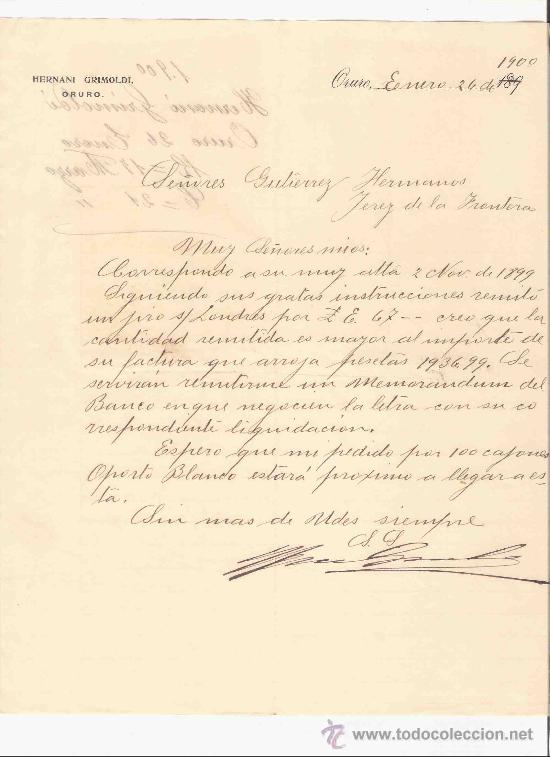 1900
HERNANI GRIMOLDI,
ORURO.
Oruro, Enero 26 de 189
Señores Gutierrez Hermanos
Jerez de la Frontera
Muy Señores mios:
Correspondo a su muy atta 2 Nov. de 1899
Siguiendo sus gratas instrucciones remitó
un jiro s/Londres por £ E. 67-- creo que la
cantidad remitida es mayor al importe de
su factura que arroja pesetas 1936.99. Se
servirán remitirme un Memorandum del
Banco en que negocien la letra con su co
rrespondiente liquidacion.
Espero que mi pedido por 100 cajones
Oporto Blanco estará proximo a llegar a es-
ta.
Sin mas de Udes siempre
S. S.
www.todocoleccion.net